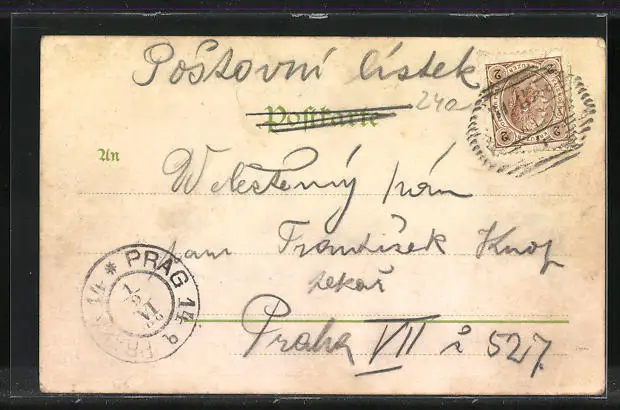 Poštovní lístek
240
Postkarte
An
Weleštěný pán
pan František Knop
pekař
Praha VII č 527.
PRAG 14
1
VI
2
2